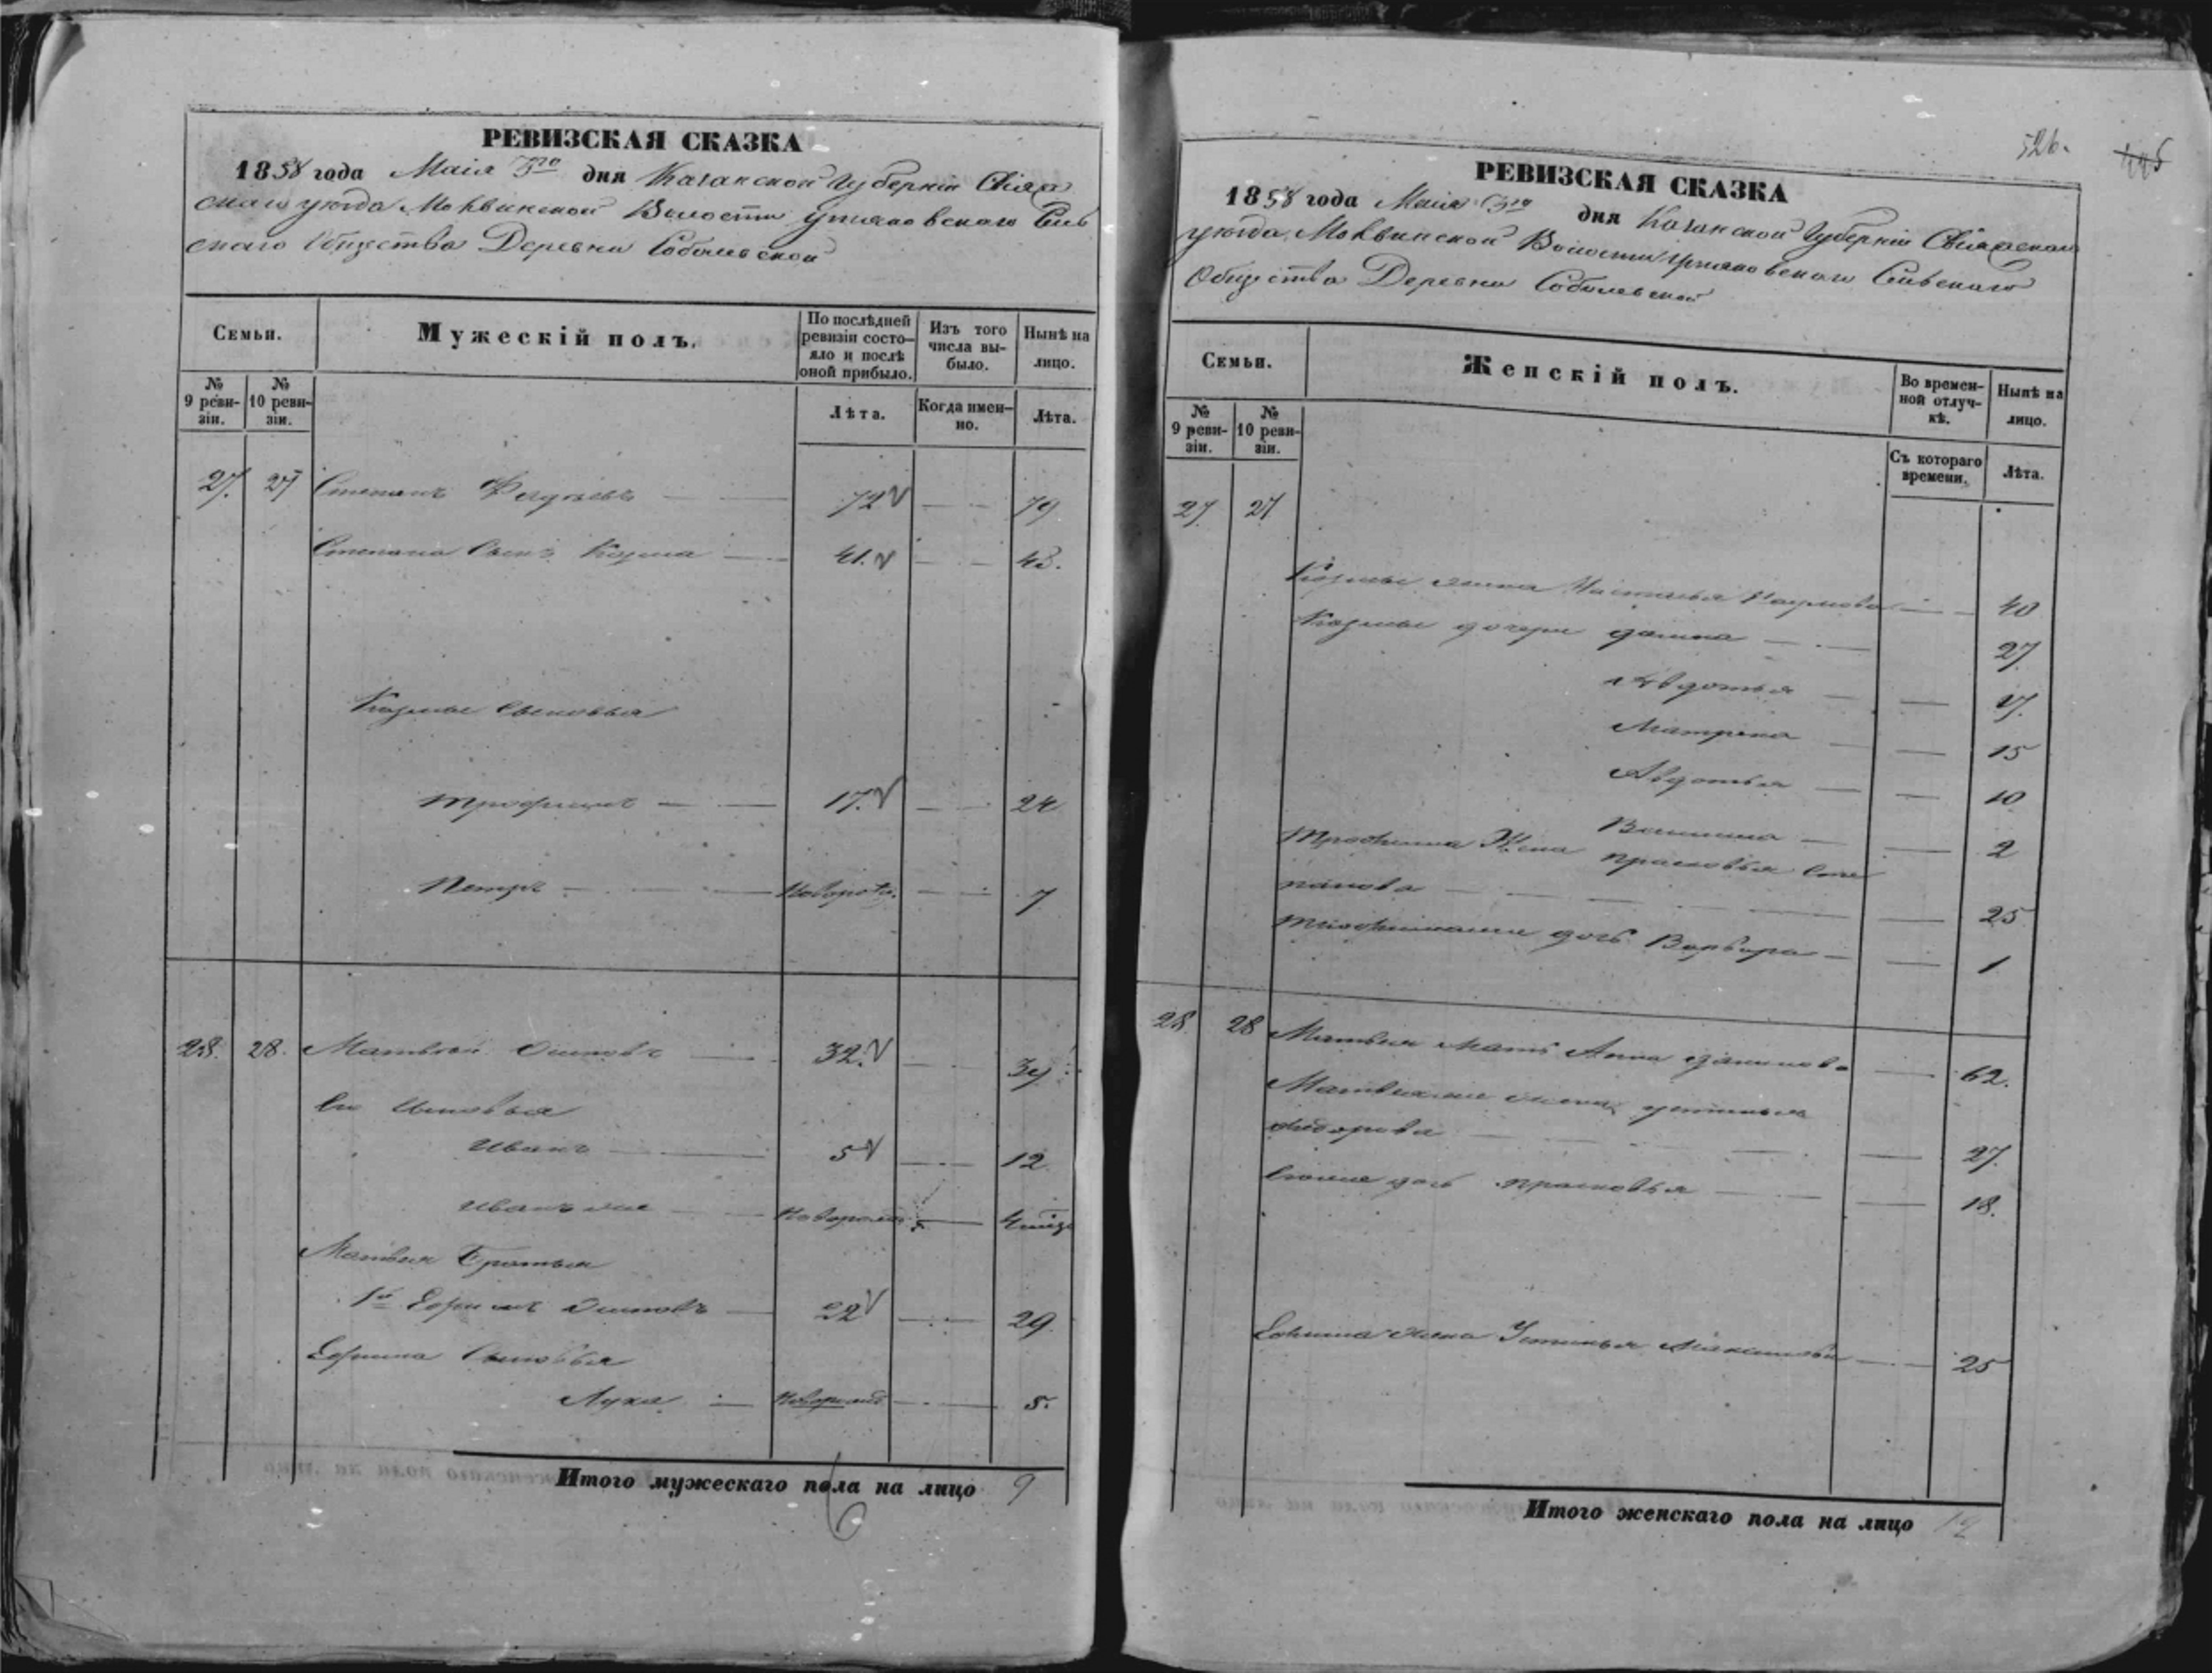 РЕВИЗСКАЯ СКАЗКА
1858 года Маія 3го дня Казанской Губерніи Свіяж
скаго уѣзда Моквинской Волости Сель
скаго Общества Деревни Соболевской
Семьи.
Мужескій полъ.
По послѣдней ревизіи состояло и послѣ оной прибыло.
Изъ того числа выбыло.
Нынѣ на лицо.
№ 9 ревизіи.
№ 10 ревизіи.
Лѣта.
Когда именно.
Лѣта.
27. 27 Степанъ 72 79
Степана Сынъ Козма 41. 48.
Козмы Сыновья
Трофимъ 17. 24
Петръ Новорожд. 7
28. 28. Матвей Осиповъ 32. 39
Его Сыновья
Иванъ 5 12
Иванъ же Новорожд.
Матвея Братья
1й Ефимъ Осиповъ 22 29.
Ефима Сыновья
Лука Новорожд 5.
Итого мужескаго пола на лицо 9
6
526.
РЕВИЗСКАЯ СКАЗКА
1858 года Маія 3го дня Казанской Губерніи Свіяжскаго
уѣзда Моквинской Волости Сельскаго
Общества Деревни Соболевской
Семьи.
Женскій полъ.
Во временной отлучкѣ.
Нынѣ на лицо.
№ 9 ревизіи.
№ 10 ревизіи.
Съ котораго времени.
Лѣта.
27 27
Козмы жена Настасья Наумова 40
Козмы дочери 27
Авдотья 17.
Матрена 15
Авдотья 10
2
Трофима Жена Прасковья Сте
панова 25
дочь Варвара 1
28 28 Матвея Мать Анна Данилова 62.
жена Устинья
Федорова 27.
дочь Прасковья 18.
Ефима жена Устинья 25
Итого женскаго пола на лицо 12